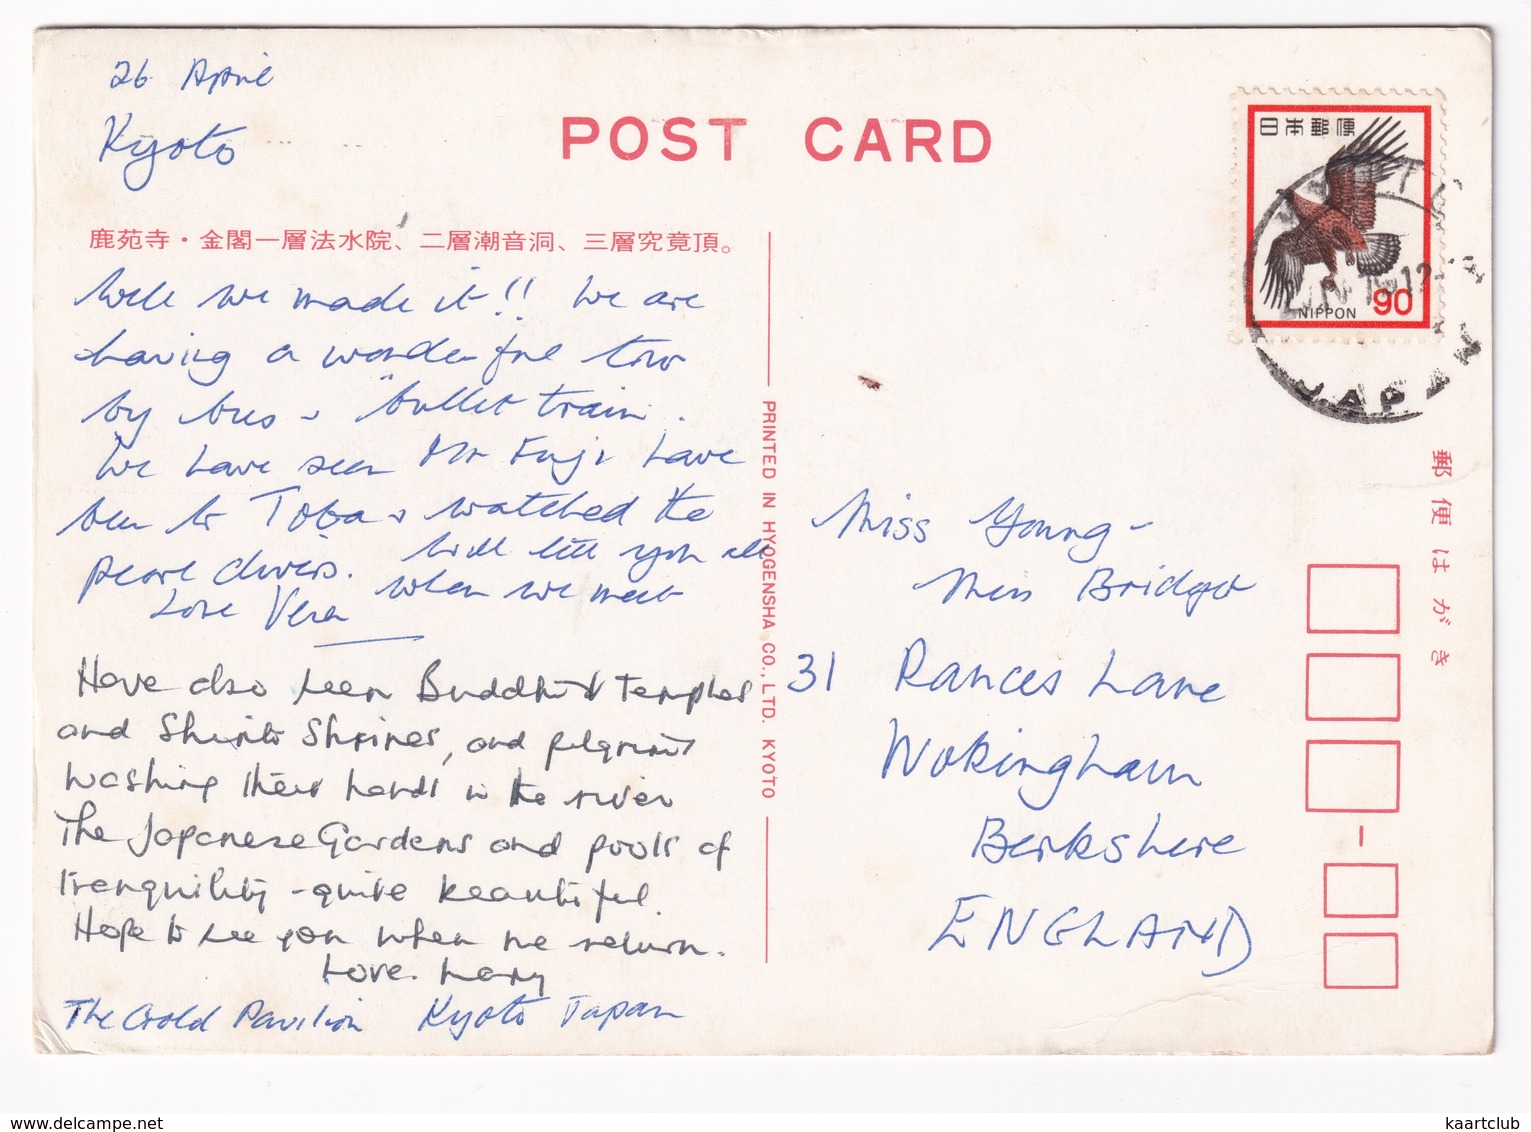 26 April
Kyoto
POST CARD
鹿苑寺・金閣一層法水院、二層潮音洞、三層究竟頂。
Well we made it!! We are
having a wonderful tour
by bus & "bullet train.
We have seen Mt Fuji have
been to Toba & watched the
pearl divers. Will tell you all
when we meet
Love Vera
Have also seen Buddhist temples
and Shinto Shrines, and pilgrims
washing their hands in the river
The Japanese Gardens and pools of
tranquility - quite beautiful.
Hope to see you when we return.
Love.
The Gold Pavilion Kyoto Japan
PRINTED IN HYOGENSHA CO., LTD. KYOTO
日本郵便
NIPPON 90
JAPAN
郵便はがき
Miss Young -
Miss Bridger
31 Rances Lane
Wokingham
Berkshire
ENGLAND
kaartclub
www.delcampe.net